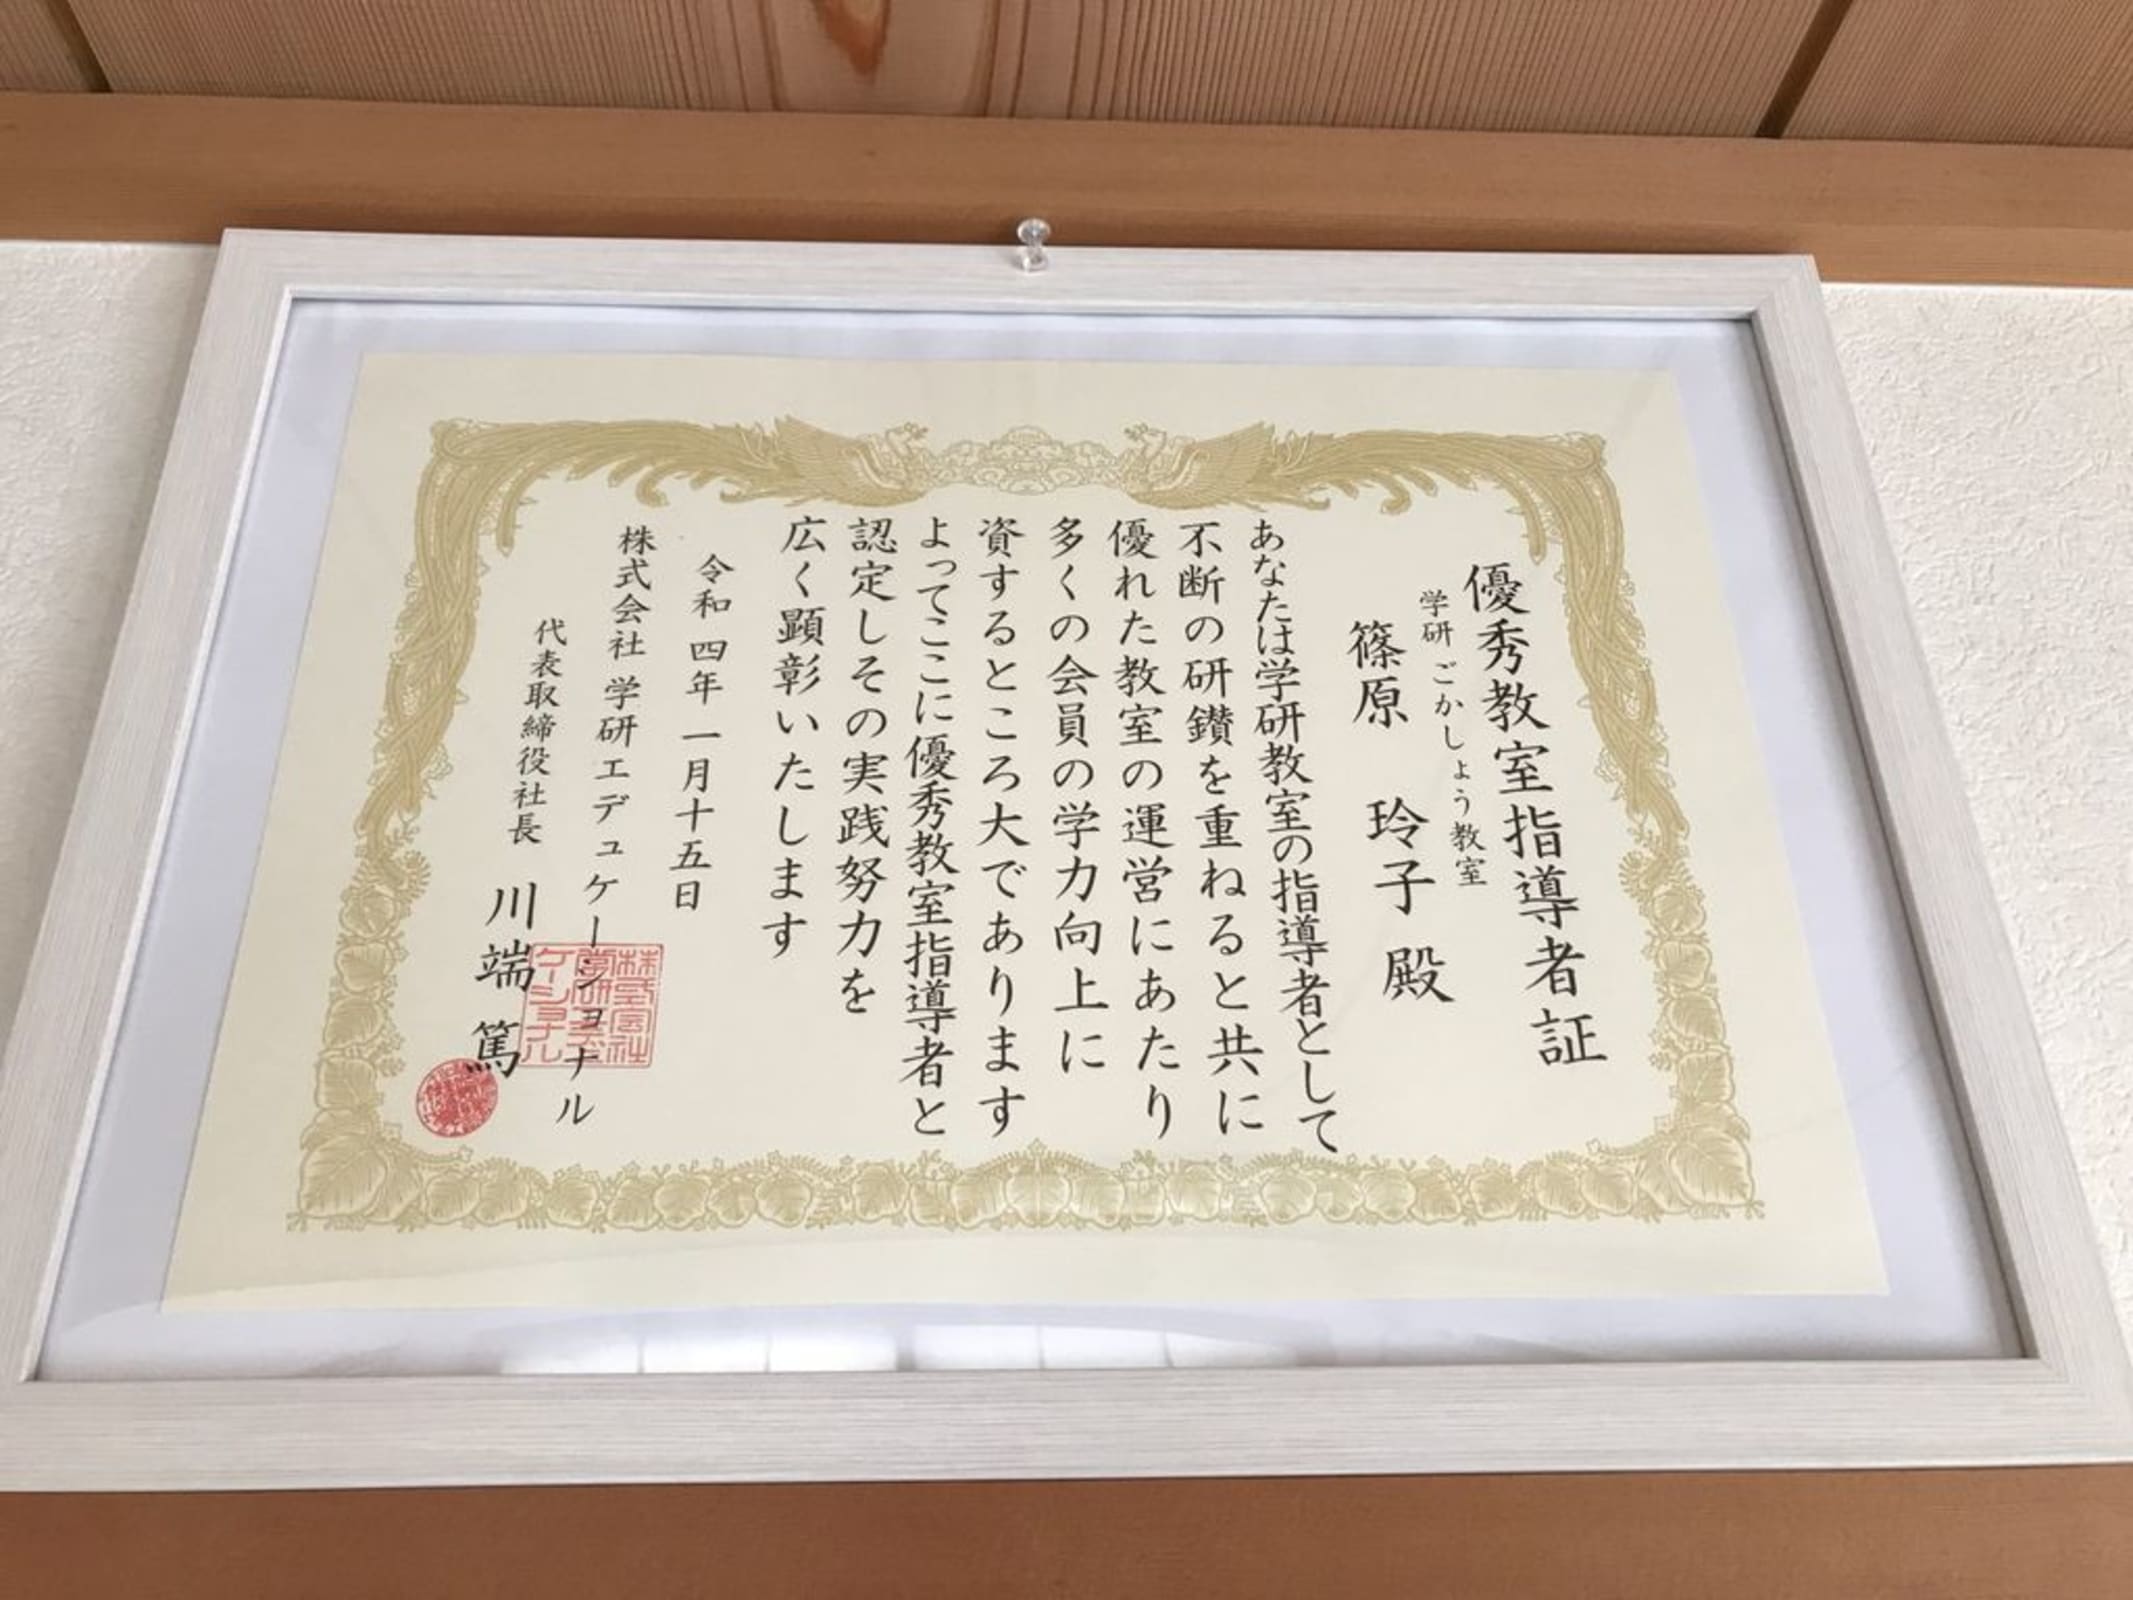 優秀教室指導者証
学研 ごかしょう教室
篠原 玲子 殿
あなたは学研教室の指導者として
不断の研鑽を重ねると共に
優れた教室の運営にあたり
多くの会員の学力向上に
資するところ大であります
よってここに優秀教室指導者と
認定しその実践努力を
広く顕彰いたします
令和 四年 一月 十五日
株式会社 学研エデュケーショナル
代表取締役社長 川端 篤